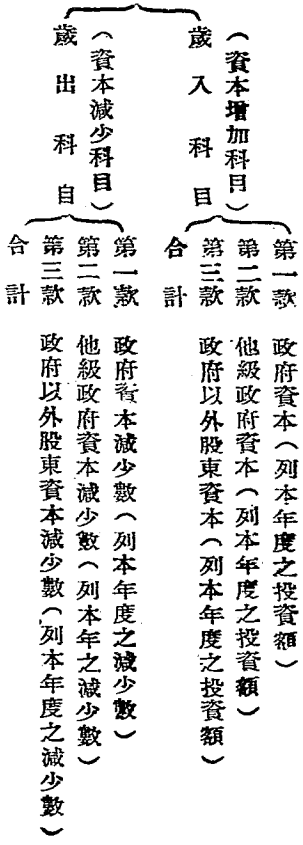 （資本增加科目）
歲入科目
第一款　政府資本（列本年度之投資額）
第二款　他級政府資本（列本年度之投資額）
第三款　政府以外股東資本（列本年度之投資額）
合計
（資本減少科目）
歲出科目
第一款　政府資本減少數（列本年度之減少數）
第二款　他級政府資本減少數（列本年之減少數）
第三款　政府以外股東資本減少數（列本年度之減少數）
合計